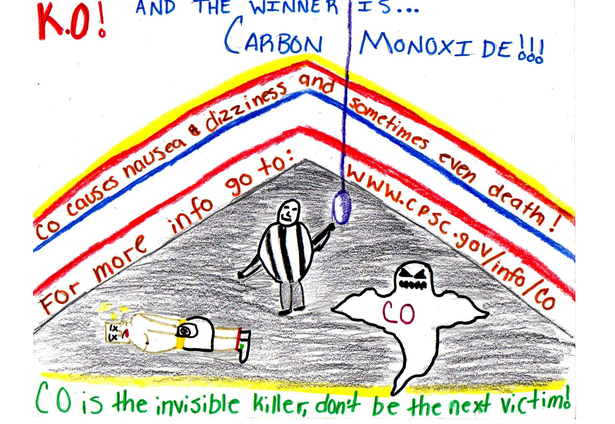 K.O!
AND THE WINNER IS...
CARBON MONOXIDE!!!
CO causes nausea & dizziness and sometimes even death!
For more info go to: www.cpsc.gov/info/co
CO
CO is the invisible killer, don't be the next victim!